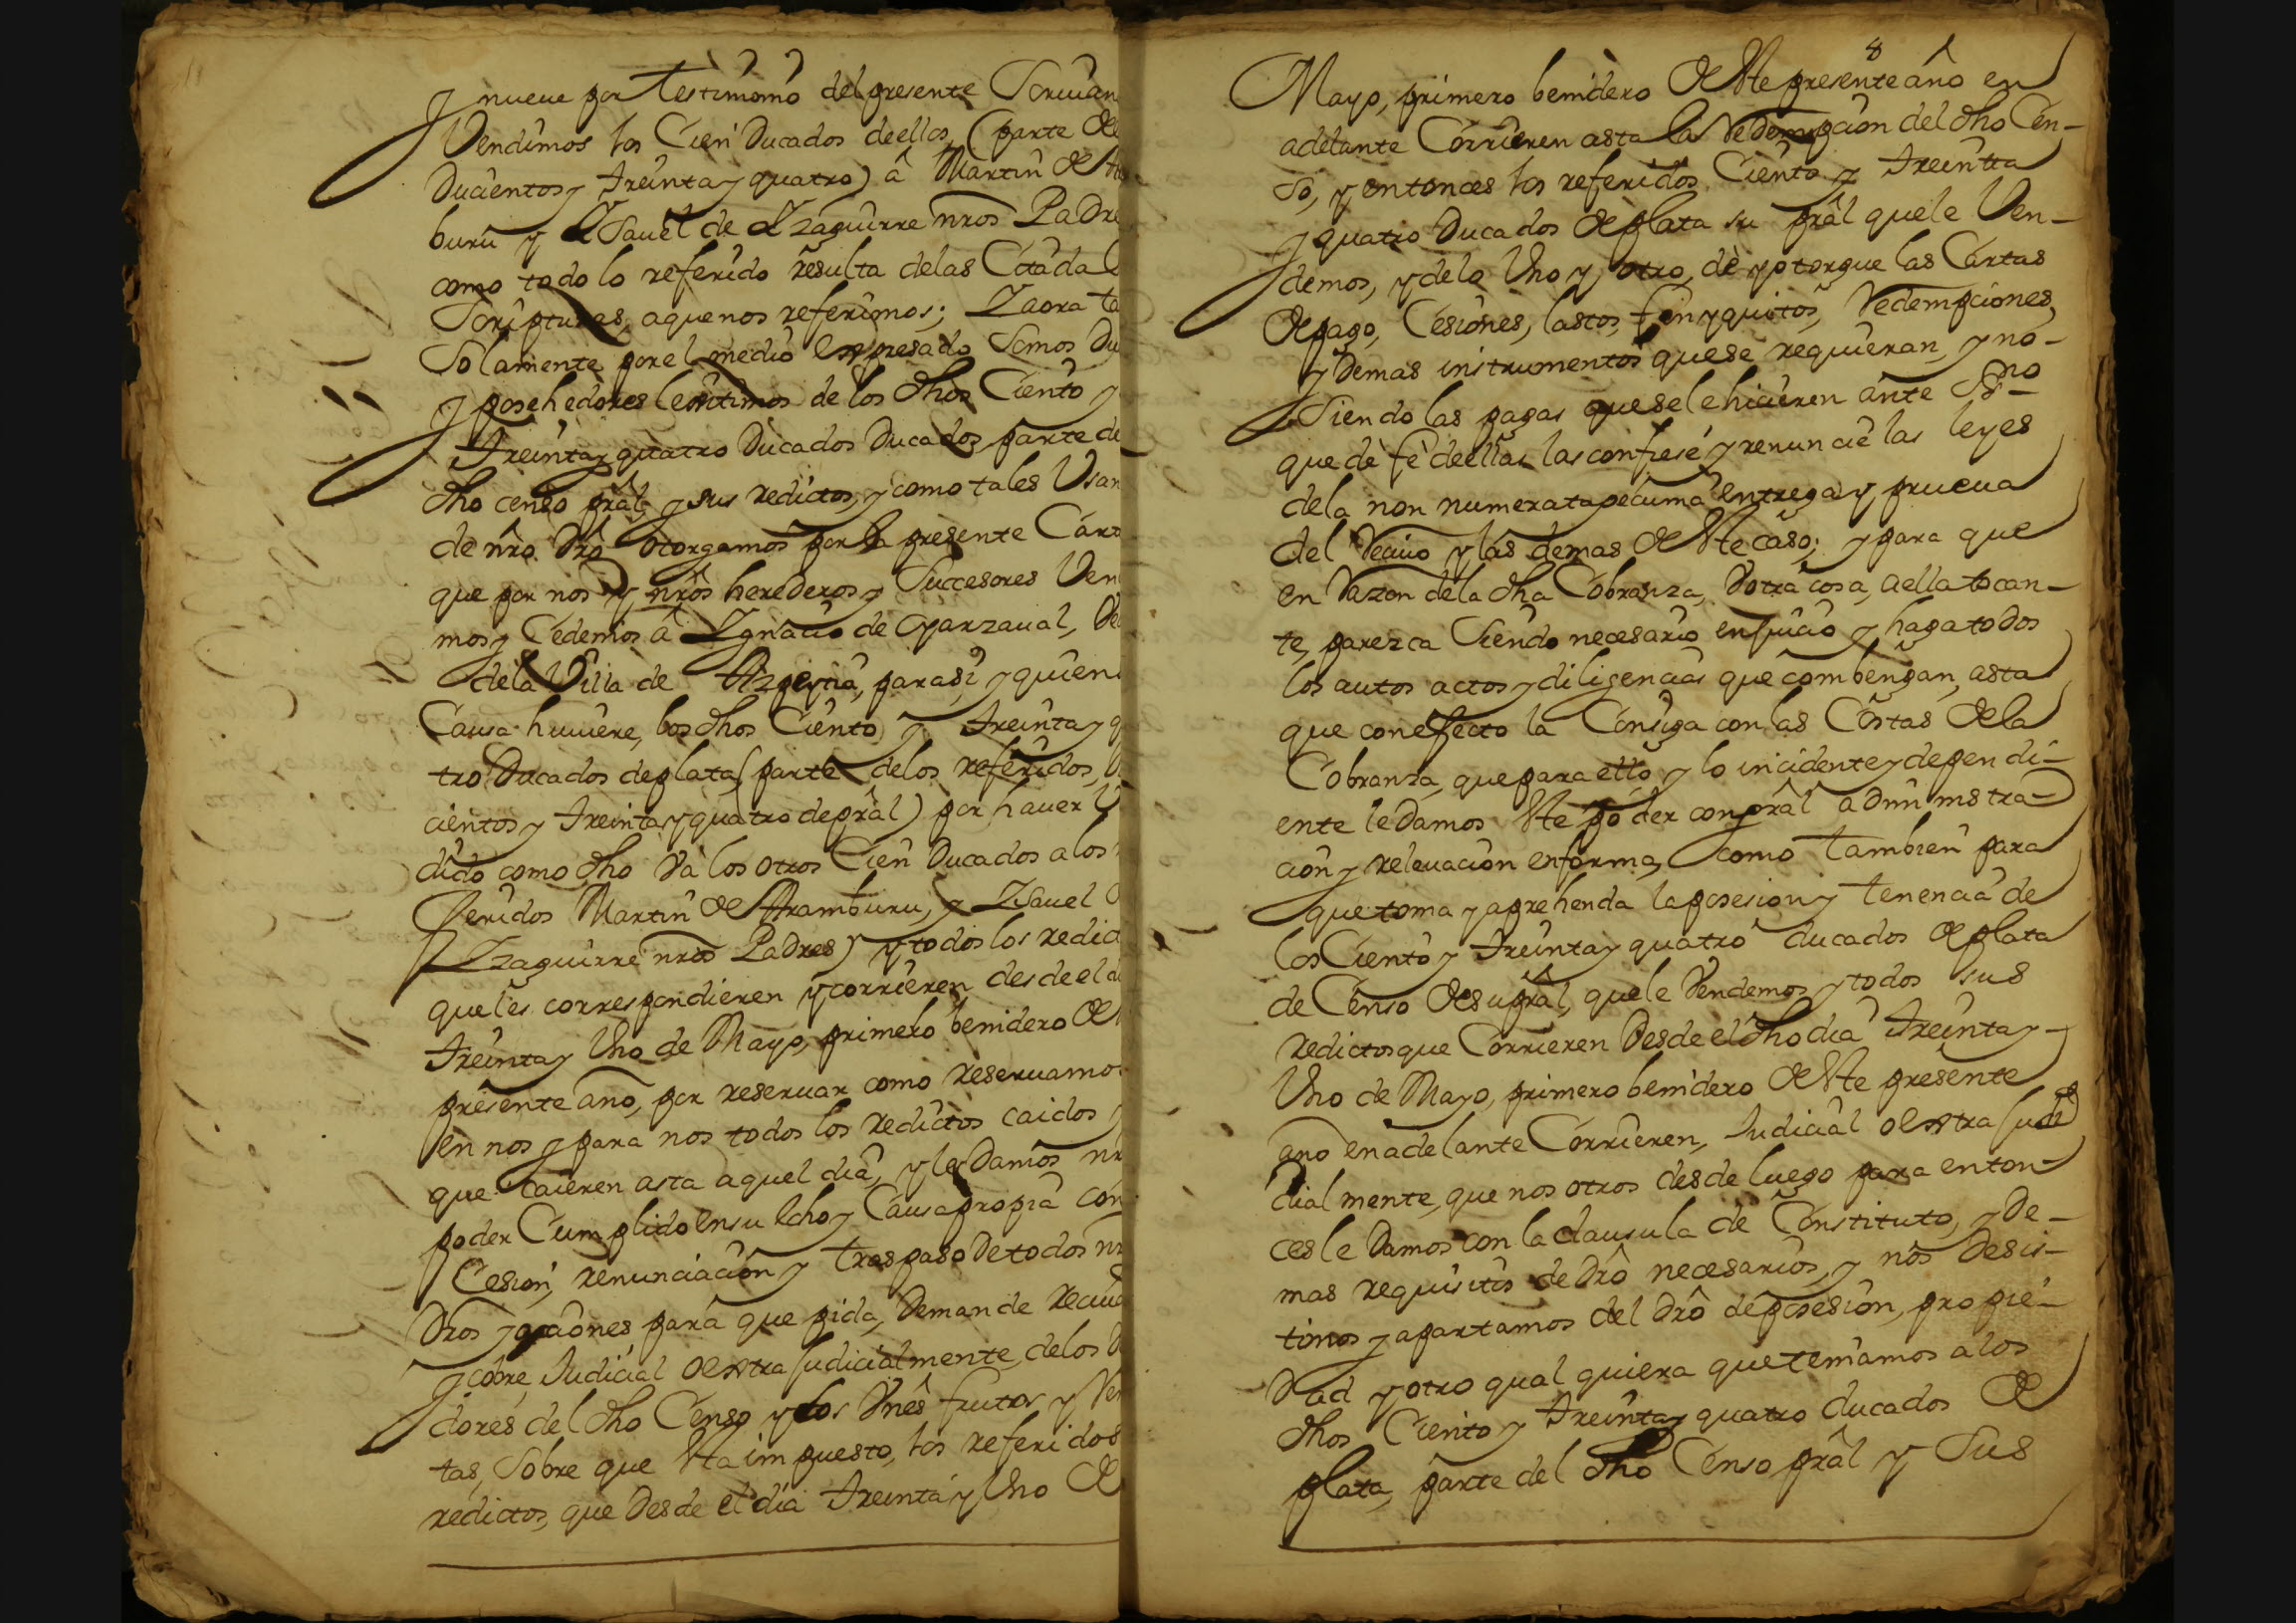 y nueve por testimonio del presente Scrivan
Vendimos los Cien Ducados de ellos, (parte de
Ducientos y treinta y quatro) â Martin de
buru y Ysavel de Yzaguirre nros Padre
como todo lo referido resulta delas Citada
Scripturas, aque nos referimos; Yaora ta
Solamente por el medio expresado Somos Du
y posehedores lexitimos de los dhos Ciento y
treinta y quatro Ducados Ducados, parte de
dho censo prâl, y sus redictos, y como tales Usan
de nro Dro otorgamos por la presente Cart
que por nos y nros herederos y Successores Ven
mos y Cedemos â Ygnacio de Oyarzaval, Ve
dela Villa de Azpeytia, para si, y quien
Causa huviere, los dhos Ciento y treinta y q
tro Ducados de plata (parte delos referidos, D
cientos y treinta y quatro de prâl) por haver V
dido como dho va los otros Cien Ducados a los
feridos Martin de Aramburu, y Ysavel
Yzaguirre nros Padres) y todos los redict
que les correspondieren y corrieren, desde el di
treinta y Uno de Mayo, primero benidero de
presente año, por reservar como reservamos
en nos y para nos todos los redictos caidos y
que Caieren asta aquel dia, y le Damos nr
poder Cumplido en su fcho y Causa propia con
Cesion, renunciacion y traspaso de todos nr
Dros y acaones, para que pida, Demande reciva
y cobre Judicial o extra judicialmente, delos D
dores del dho Censo y los Vnes frutos y Ren
tas, Sobre que Sta impuesto, los referidos
redictos, que Desde el dia treinta y Uno de
8
Mayo, primero benidero de Ste presente año en
adelante Corrieren asta la redempcion del dho Cen-
so, y entonces los referidos Ciento y treintta
y quatro Ducados de plata su prâl que le Ven-
demos, y delo Uno y otro, dè y otorgue las Cartas
de pago, Cesiones, lastos, fin y quitos, redempciones,
y Demas instrumentos que se requieran, y no-
Siendo las pagas que se le hicieren ante Ssno
que dè fê de ellas, las confiesê y renuncie las leyes
dela non numerata pecunia entrega y prueva
del recivo y las demas de Ste caso; y para que
en razon dela dha Cobranza, ù otra cosa, a ella tocan-
te, parezca Siendo necesario en juicio y haga todos
los autos actos y diligencias que combengan, asta
que con efecto la Consiga con las Costas de la
Cobranza, que para ello y lo incidente y dependi-
ente le Damos Ste poder con prâl administra-
cion y relevacion en forma, como tambien para
que toma y aprehenda la posesion y tenencia de
los Ciento y treinta y quatro ducados de plata
de Censo de su prâl, que le Vendemos y todos sus
redictos que Corrieren Desde el dho dia treinta y-
Uno de Mayo, primero benidero de Ste presente
año en adelante Corrieren, Judicial o extra judi
cial mente, que nosotros desde luego para enton-
ces le Damos con la clausula de Constituto, y De-
mas requisitos de Dro necesarios, y nos Desis-
timos y apartamos del Dro de posesion, propie-
dad y otro qual quiera que teniamos a los
dhos Ciento y treinta y quatro ducados de
plata, parte del dho Censo prâl y Sus